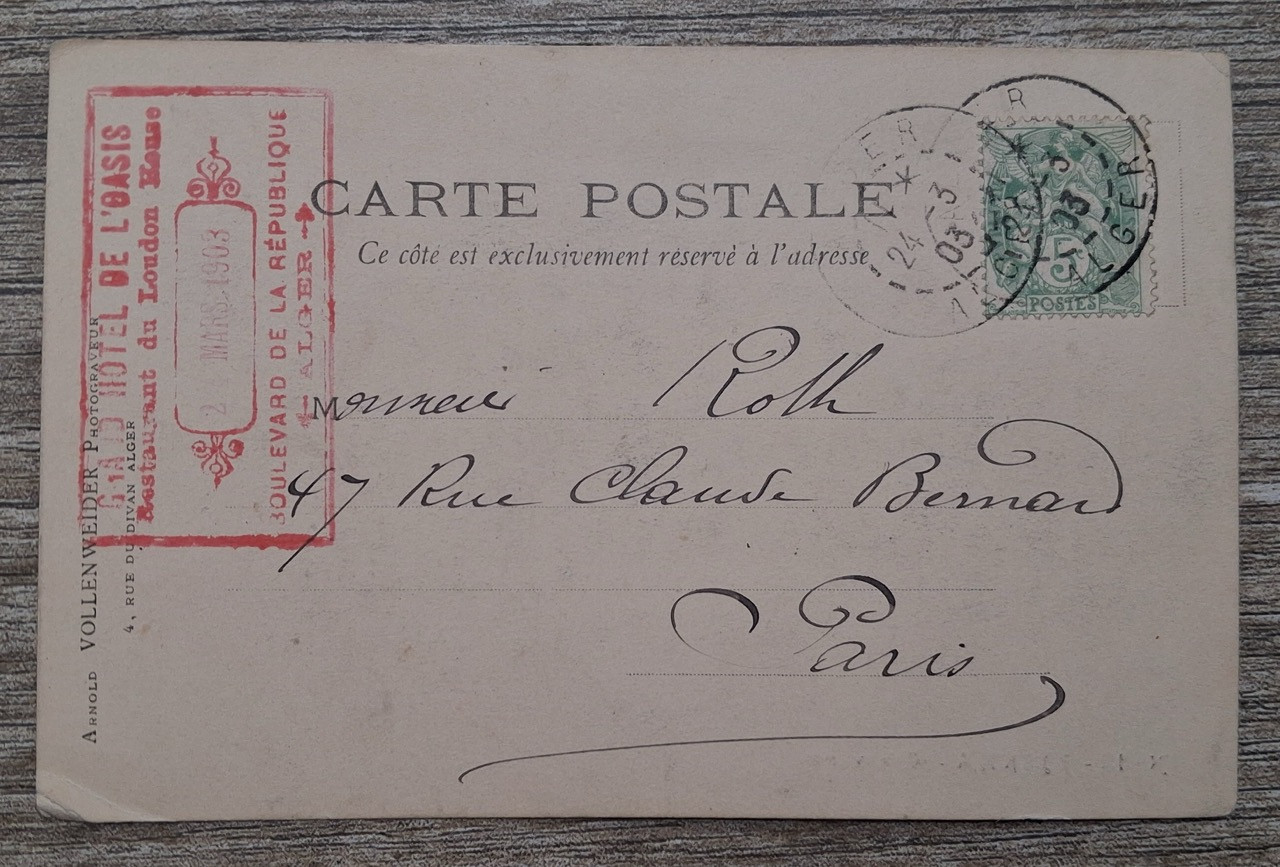 CARTE POSTALE
Ce côté est exclusivement réservé à l'adresse
Monsieur Roth
47 Rue Claude Bernard
Paris
HOTEL DE L'OASIS
Restaurant du London House
2 MARS 1903
BOULEVARD DE LA RÉPUBLIQUE
ALGER
ARNOLD VOLLENWEIDER PHOTOGRAVEUR
4, RUE DU DIVAN ALGER
ALGER
24
3
03
ALGER
3
03
5
POSTES